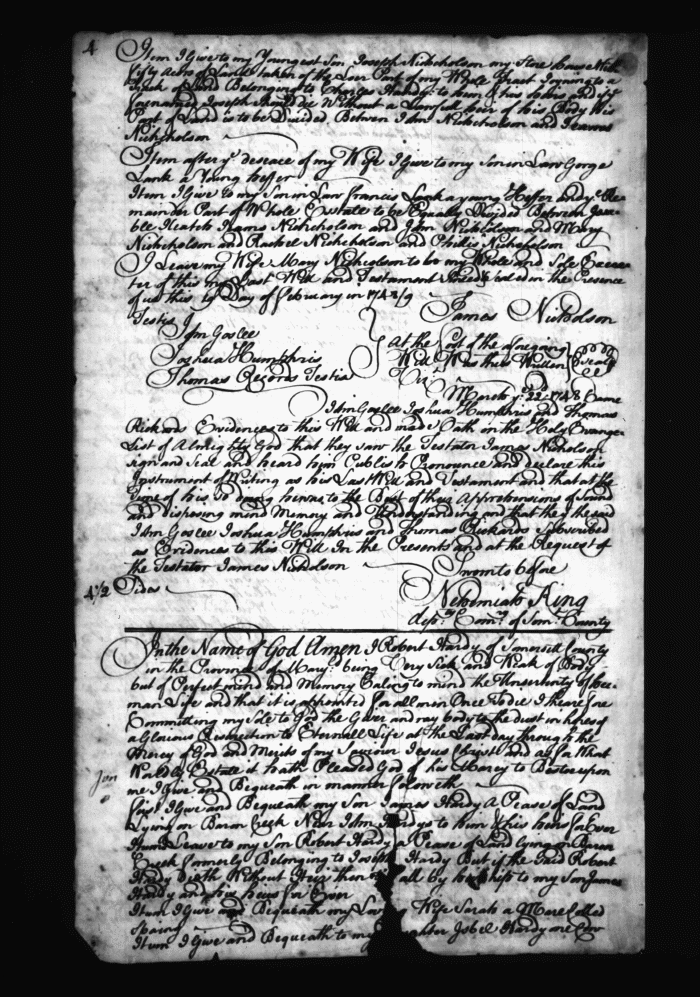 4
Item I Give to my Youngest Son Joseph Nicholson my Store house With
fifty Acres of Land taken of the Loer Part of my Whole Tract Joyning to a
Track of Land Belonging to Charles Hardy to him & his heirs and if ye
forenamed Joseph Should die Without a Lawfull heir of his Body His
Part of Land is to be Divided Betwen John Nicholson and Jeams
Nicholson
Item after ye deseace of my Wife I Give to my Son in Law Gorge
Lank a Young heffer
Item I Give to my Son in Law francis Lank a young Heffer and ye Re-
mainder Part of Whole Estate to be Equally Divided Between
Jeams Nicholson and John Nicholson and Mary
Nicholson and Rachel Nicholson and Phillis Nicholson
I Leave my Wife Mary Nicholson to be my Whole and Sole Execu-
ter of this my Last Will and Testament Sealed in the Presence
of us this 19 Day of February in 1748/9
Testis James Nicholson
John Goslee
Joshua Humphris At the foot of the aforegoing
Thomas Records Testis Will Was thus Written Seale
Viz March ye 22 1748 Came
John Goslee Joshua Humphris and Thomas
Rickards Evidences to this Will and made Oath on the Holy Evange-
list of Almighty God that they saw the Testator James Nicholson
sign and Seal and heard him Publish Pronounce and declare this
Instrument of Writing as his Last Will and Testament and that at the
Time of his So doing he was to the Best of their Apprehensions of Sound
and disposing mind Memory and Understanding and that they the said
John Goslee Joshua Humphris and Thomas Rickards Subscribed
as Evidences to this Will In the Presents and at the Request of
the Testator James Nicholson Sworn to before
4 1/2 Sides Nehemiah King
depty Comry of Somt County
In the Name of God Amen I Robert Hardy of Somersett County
in the Province of Maryd being Very Sick and Weak of Body
but of Perfect mind and Memory Calling to mind the Unsertenty of hu-
man Life and that it is appointed for all men Once To die I theare fore
Committing my Sole to God the Giver and my body to the dust in hopes of
a Glorious Resurrection to Eternall Life at the Last day through the
Mercy of God and Merits of my Saviour Jesus Christ and as for What
Worldly Estate it hath Pleased God of his Marcy to Bestow upon
me I Give and Bequeath in manner foloweth
first I Give and Bequeath my Son James Hardy A Pease of Land
Lying on Baron Creek Near John Hardys to him & his heirs for Ever
Item I Leave to my Son Robert Hardy a Pease of Land Lying on Baron
Creek formerly Belonging to Joseph Hardy But if the Said Robert
Hardy Dieth Without Heir then all by hairship to my Son James
Hardy and his heirs for Ever
Item I Give and Bequeath my Wife Sarah a Mare Called
Item I Give and Bequeath to my Daughter Isbel Hardy one Cow